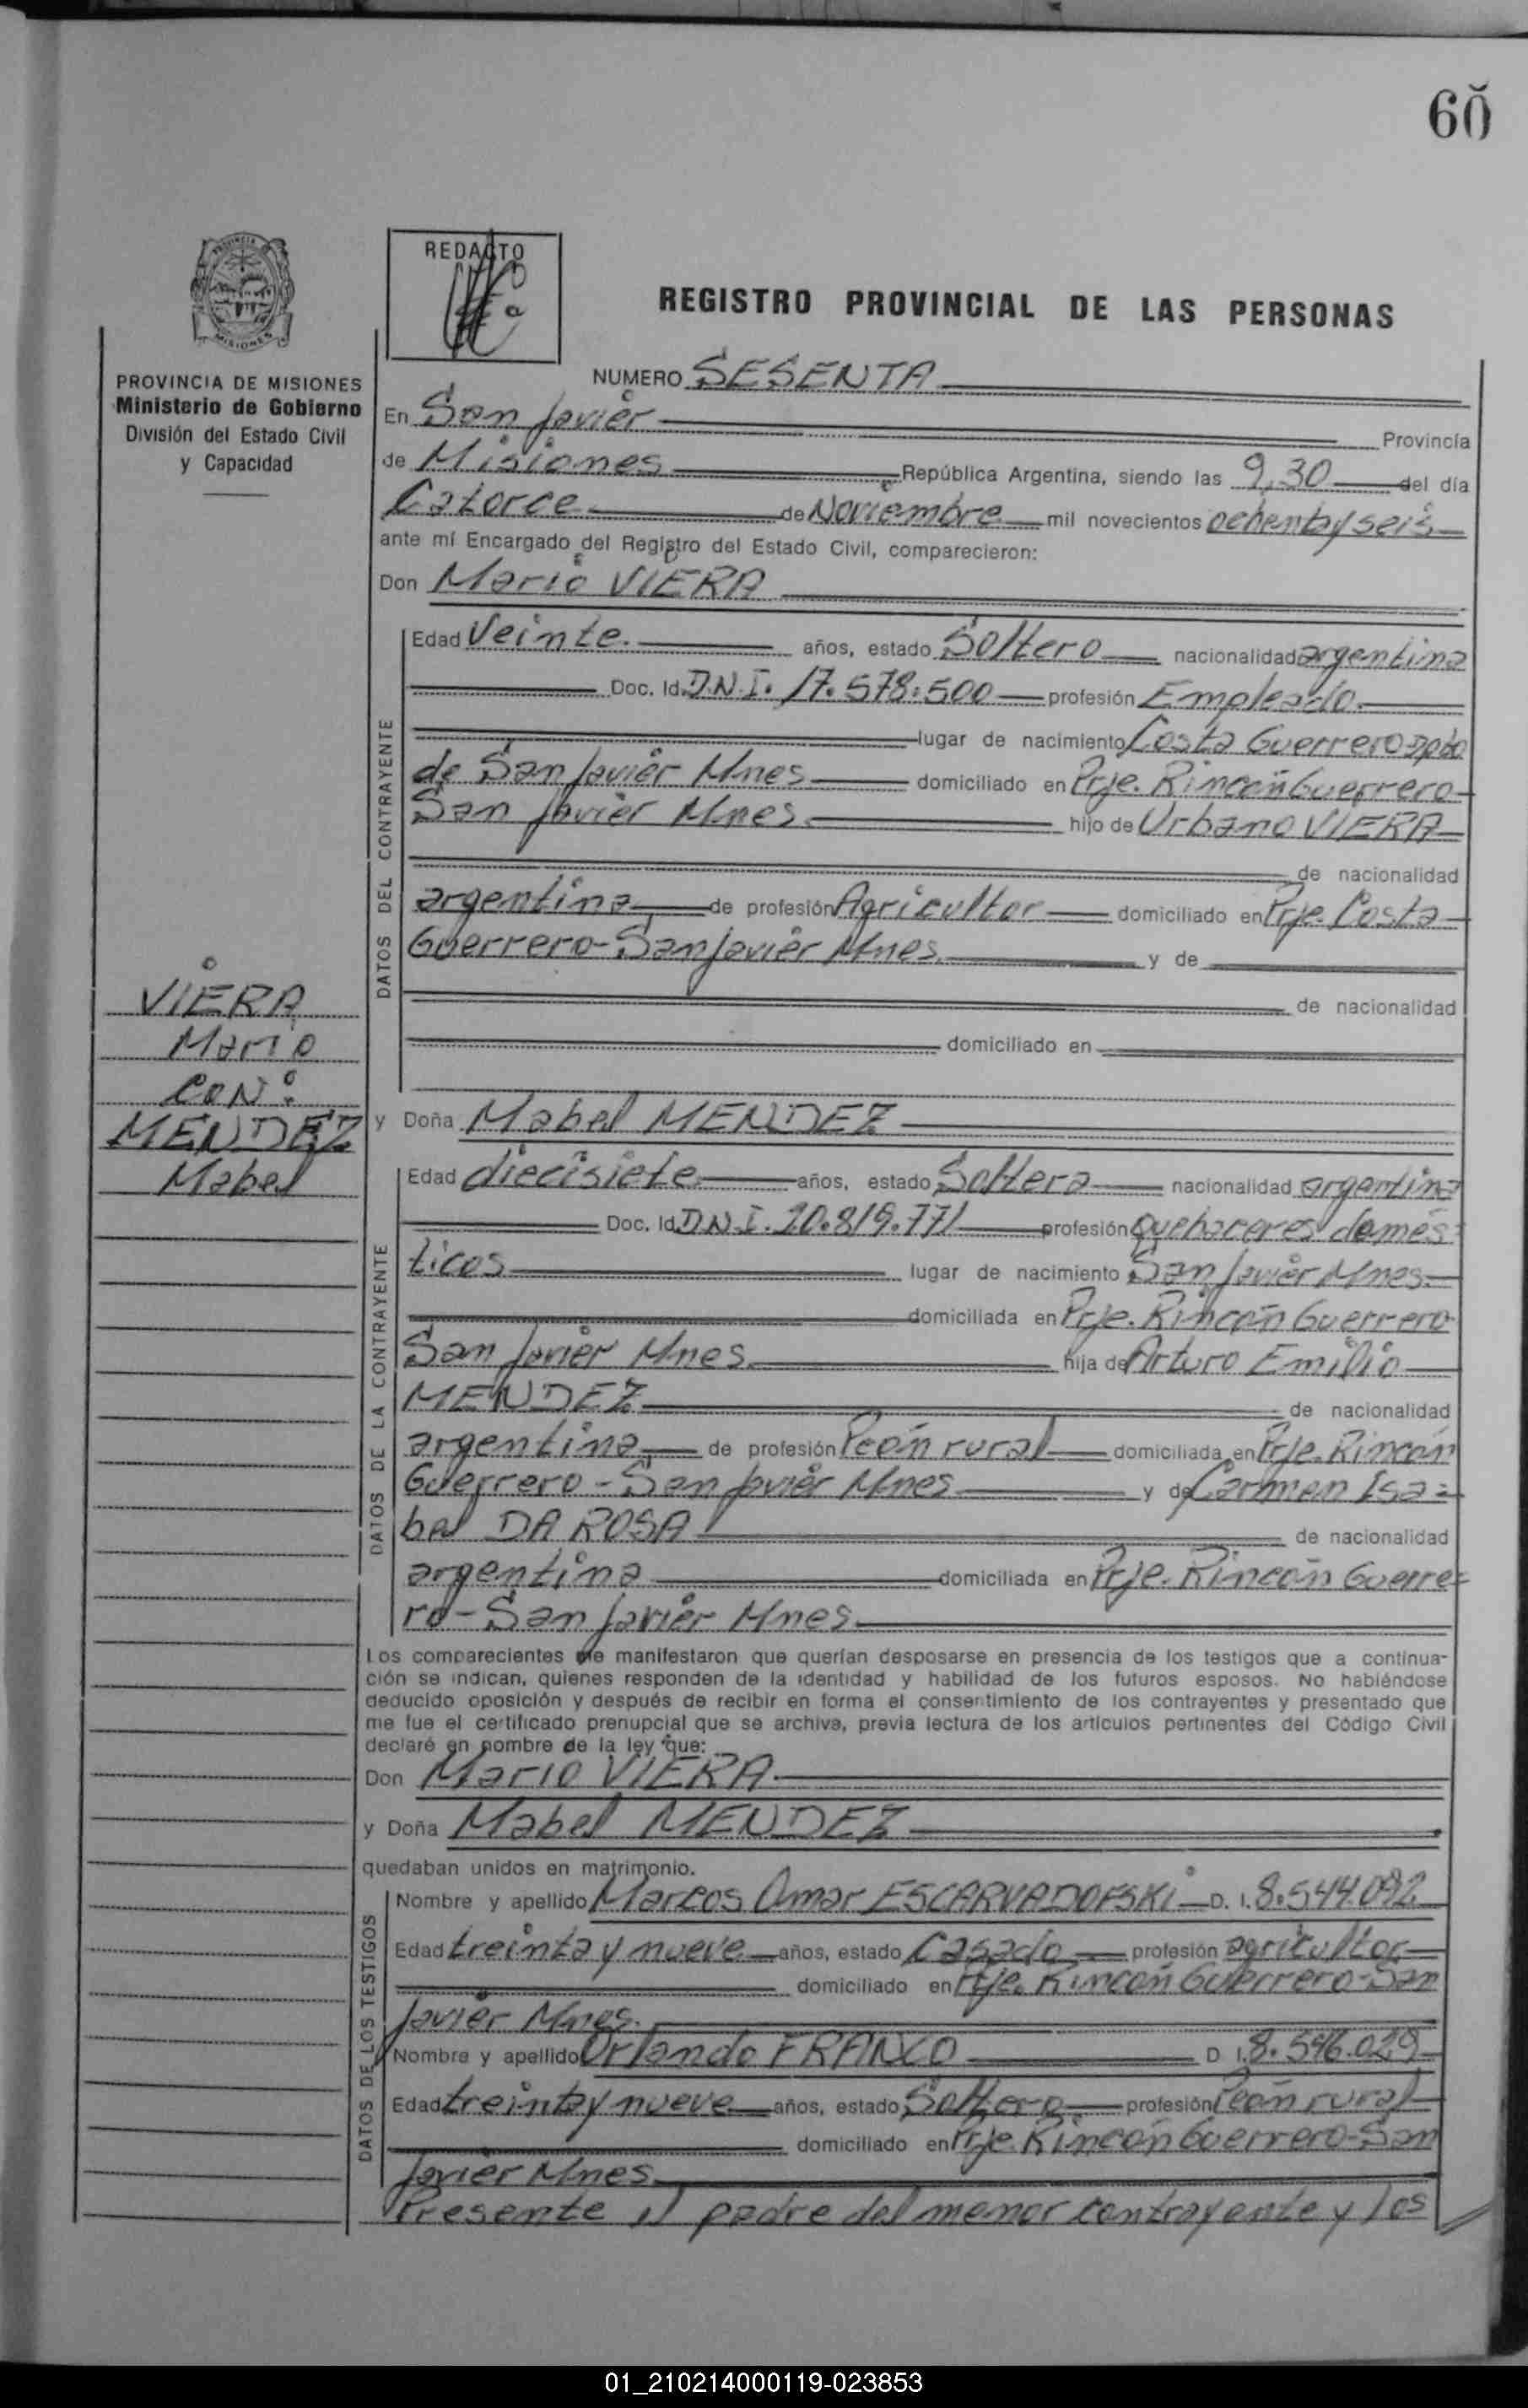 60
REDACTO
REGISTRO PROVINCIAL DE LAS PERSONAS
PROVINCIA DE MISIONES
Ministerio de Gobierno
División del Estado Civil
y Capacidad
NUMERO SESENTA
En San Javier Provincia
de Misiones República Argentina, siendo las 9,30 del día
Catorce de Noviembre mil novecientos ochenta y seis
ante mí Encargado del Registro del Estado Civil, comparecieron:
Don Mario VIERA
Edad Veinte años, estado Soltero nacionalidad argentina
Doc. Id. D.N.I. 17.578.500 profesión Empleado
lugar de nacimiento Costa Guerrero Dpto
de San Javier Mnes domiciliado en Prje. Rincón Guerrero
San Javier Mnes hijo de Urbano VIERA
de nacionalidad
argentina de profesión Agricultor domiciliado en Prje. Costa
Guerrero-San Javier Mnes. y de
de nacionalidad
domiciliado en
DATOS DEL CONTRAYENTE
VIERA
Mario
CON:
MENDEZ
Mabel
y Doña Mabel MENDEZ
Edad diecisiete años, estado Soltera nacionalidad argentina
Doc. Id. D.N.I. 20.819.771 profesión quehaceres domés-
ticos lugar de nacimiento San Javier Mnes.
domiciliada en Prje. Rincón Guerrero
San Javier Mnes. hija de Arturo Emilio
MENDEZ de nacionalidad
argentina de profesión Peón rural domiciliada en Prje. Rincón
Guerrero - San Javier Mnes y de Carmen Isa=
bel DA ROSA de nacionalidad
argentina domiciliada en Prje. Rincón Guerre=
ro-San Javier Mnes.
DATOS DE LA CONTRAYENTE
Los comparecientes me manifestaron que querían desposarse en presencia de los testigos que a continua-
ción se indican, quienes responden de la identidad y habilidad de los futuros esposos. No habiéndose
deducido oposición y después de recibir en forma el consentimiento de los contrayentes y presentado que
me fue el certificado prenupcial que se archiva, previa lectura de los artículos pertinentes del Código Civil
declaré en nombre de la ley que:
Don Mario VIERA
y Doña Mabel MENDEZ
quedaban unidos en matrimonio.
Nombre y apellido Marcos Omar ESCARVADOFSKI D. I. 8.544.092
Edad treinta y nueve años, estado Casado profesión agricultor
domiciliado en Prje. Rincón Guerrero-San
Javier Mnes.
Nombre y apellido Orlando FRANCO D I. 8.546.029
Edad treinta y nueve años, estado Soltero profesión Peón rural
domiciliado en Prje. Rincón Guerrero-San
Javier Mnes.
DATOS DE LOS TESTIGOS
Presente el padre del menor contrayente y los
01_210214000119-023853